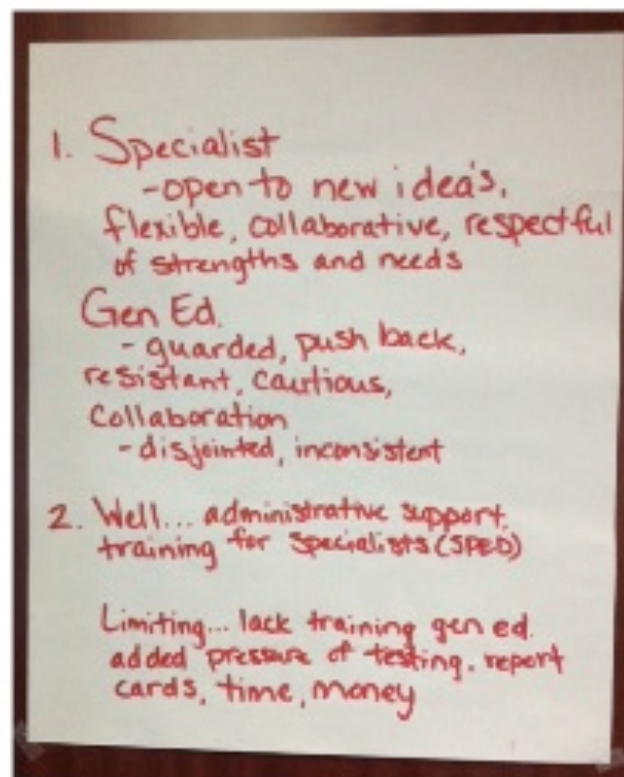 1. Specialist
-open to new idea's,
flexible, collaborative, respectful
of strengths and needs
Gen Ed.
- guarded, push back,
resistant, cautious,
Collaboration
- disjointed, inconsistent
2. Well... administrative support,
training for specialists (SPED)
Limiting... lack training gen ed.
added pressure of testing, report
cards, time, money